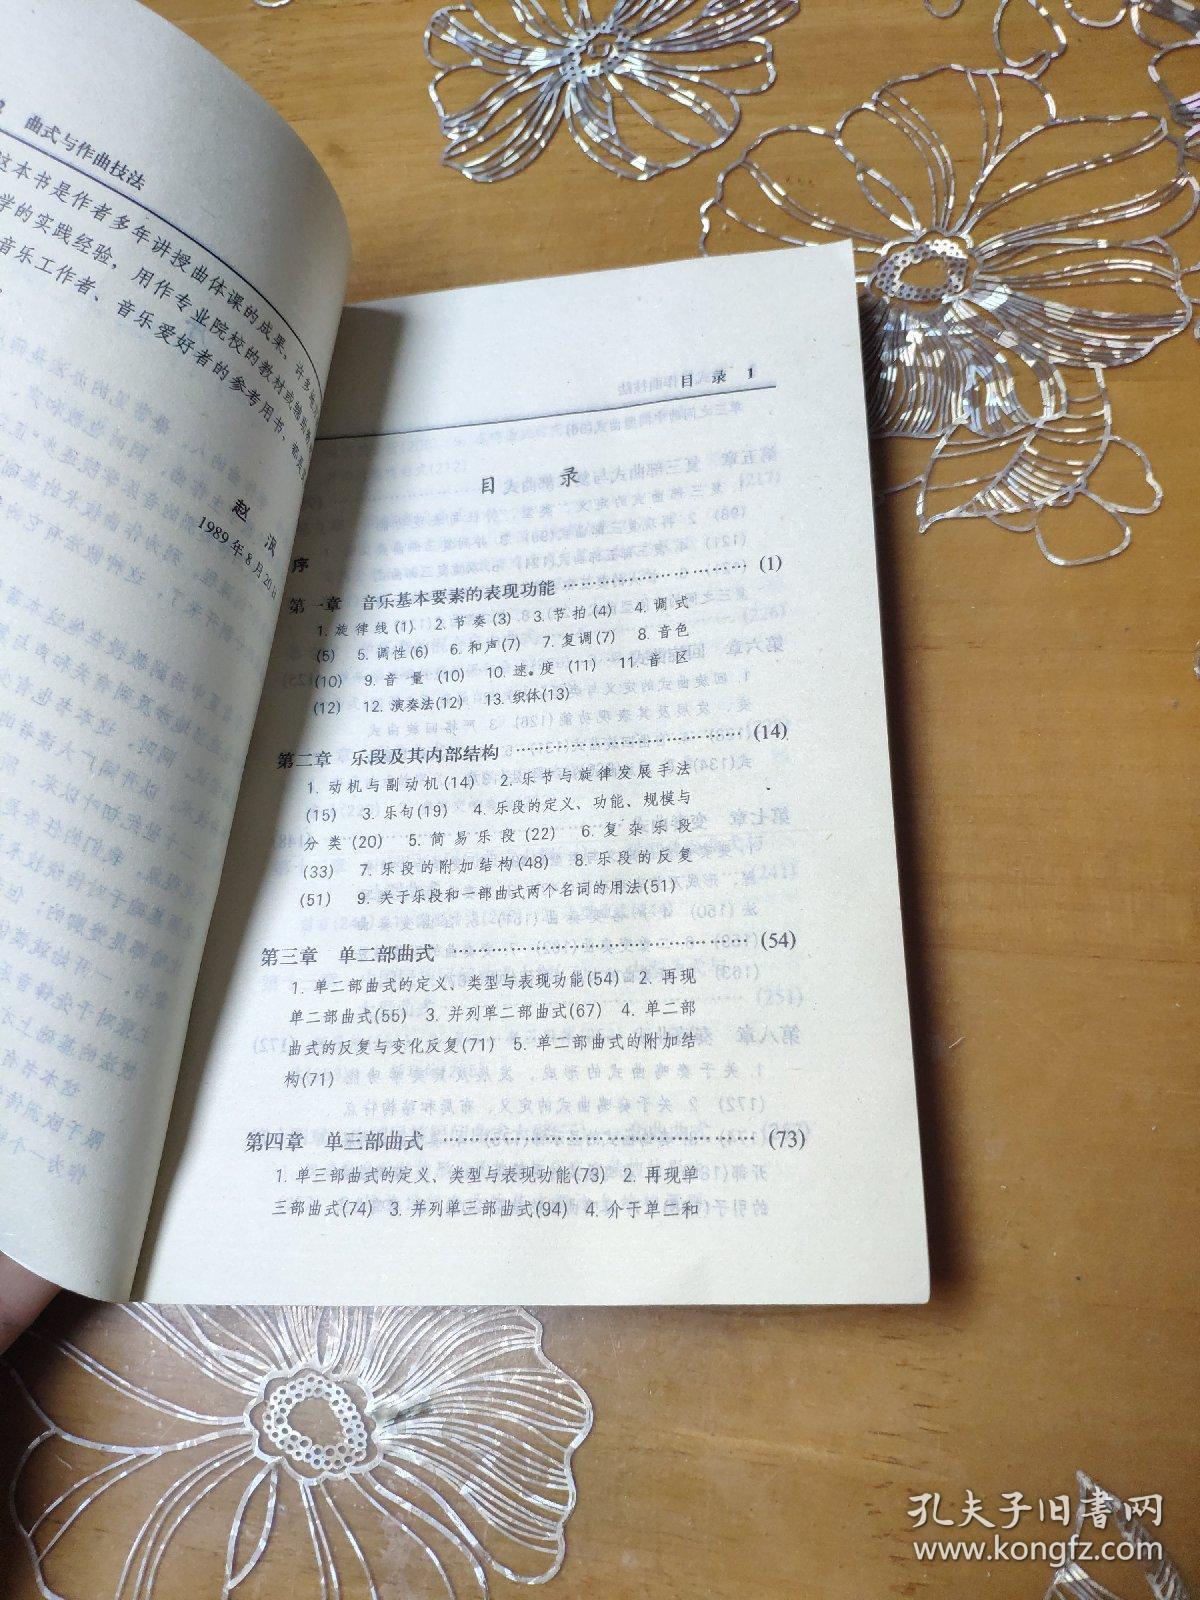 曲式与作曲技法
这本书是作者多年讲授曲体课的成果，许多
学的实践经验，用作专业院校的教材或辅助教
音乐工作者、音乐爱好者的参考用书，都
赵沨
1989年8月20日
目录 1
目 录
序
第一章 音乐基本要素的表现功能……………………(1)
1.旋律线(1) 2.节奏(3) 3.节拍(4) 4.调式
(5) 5.调性(6) 6.和声(7) 7.复调(7) 8.音色
(10) 9.音量(10) 10.速度(11) 11.音区
(12) 12.演奏法(12) 13.织体(13)
第二章 乐段及其内部结构……………………………(14)
1.动机与副动机(14) 2.乐节与旋律发展手法
(15) 3.乐句(19) 4.乐段的定义、功能、规模与
分类(20) 5.简易乐段(22) 6.复杂乐段
(33) 7.乐段的附加结构(48) 8.乐段的反复
(51) 9.关于乐段和一部曲式两个名词的用法(51)
第三章 单二部曲式……………………………………(54)
1.单二部曲式的定义、类型与表现功能(54) 2.再现
单二部曲式(55) 3.并列单二部曲式(67) 4.单二部
曲式的反复与变化反复(71) 5.单二部曲式的附加结
构(71)
第四章 单三部曲式……………………………………(73)
1.单三部曲式的定义、类型与表现功能(73) 2.再现单
三部曲式(74) 3.并列单三部曲式(94) 4.介于单二和
孔夫子旧書网
www.kongfz.com